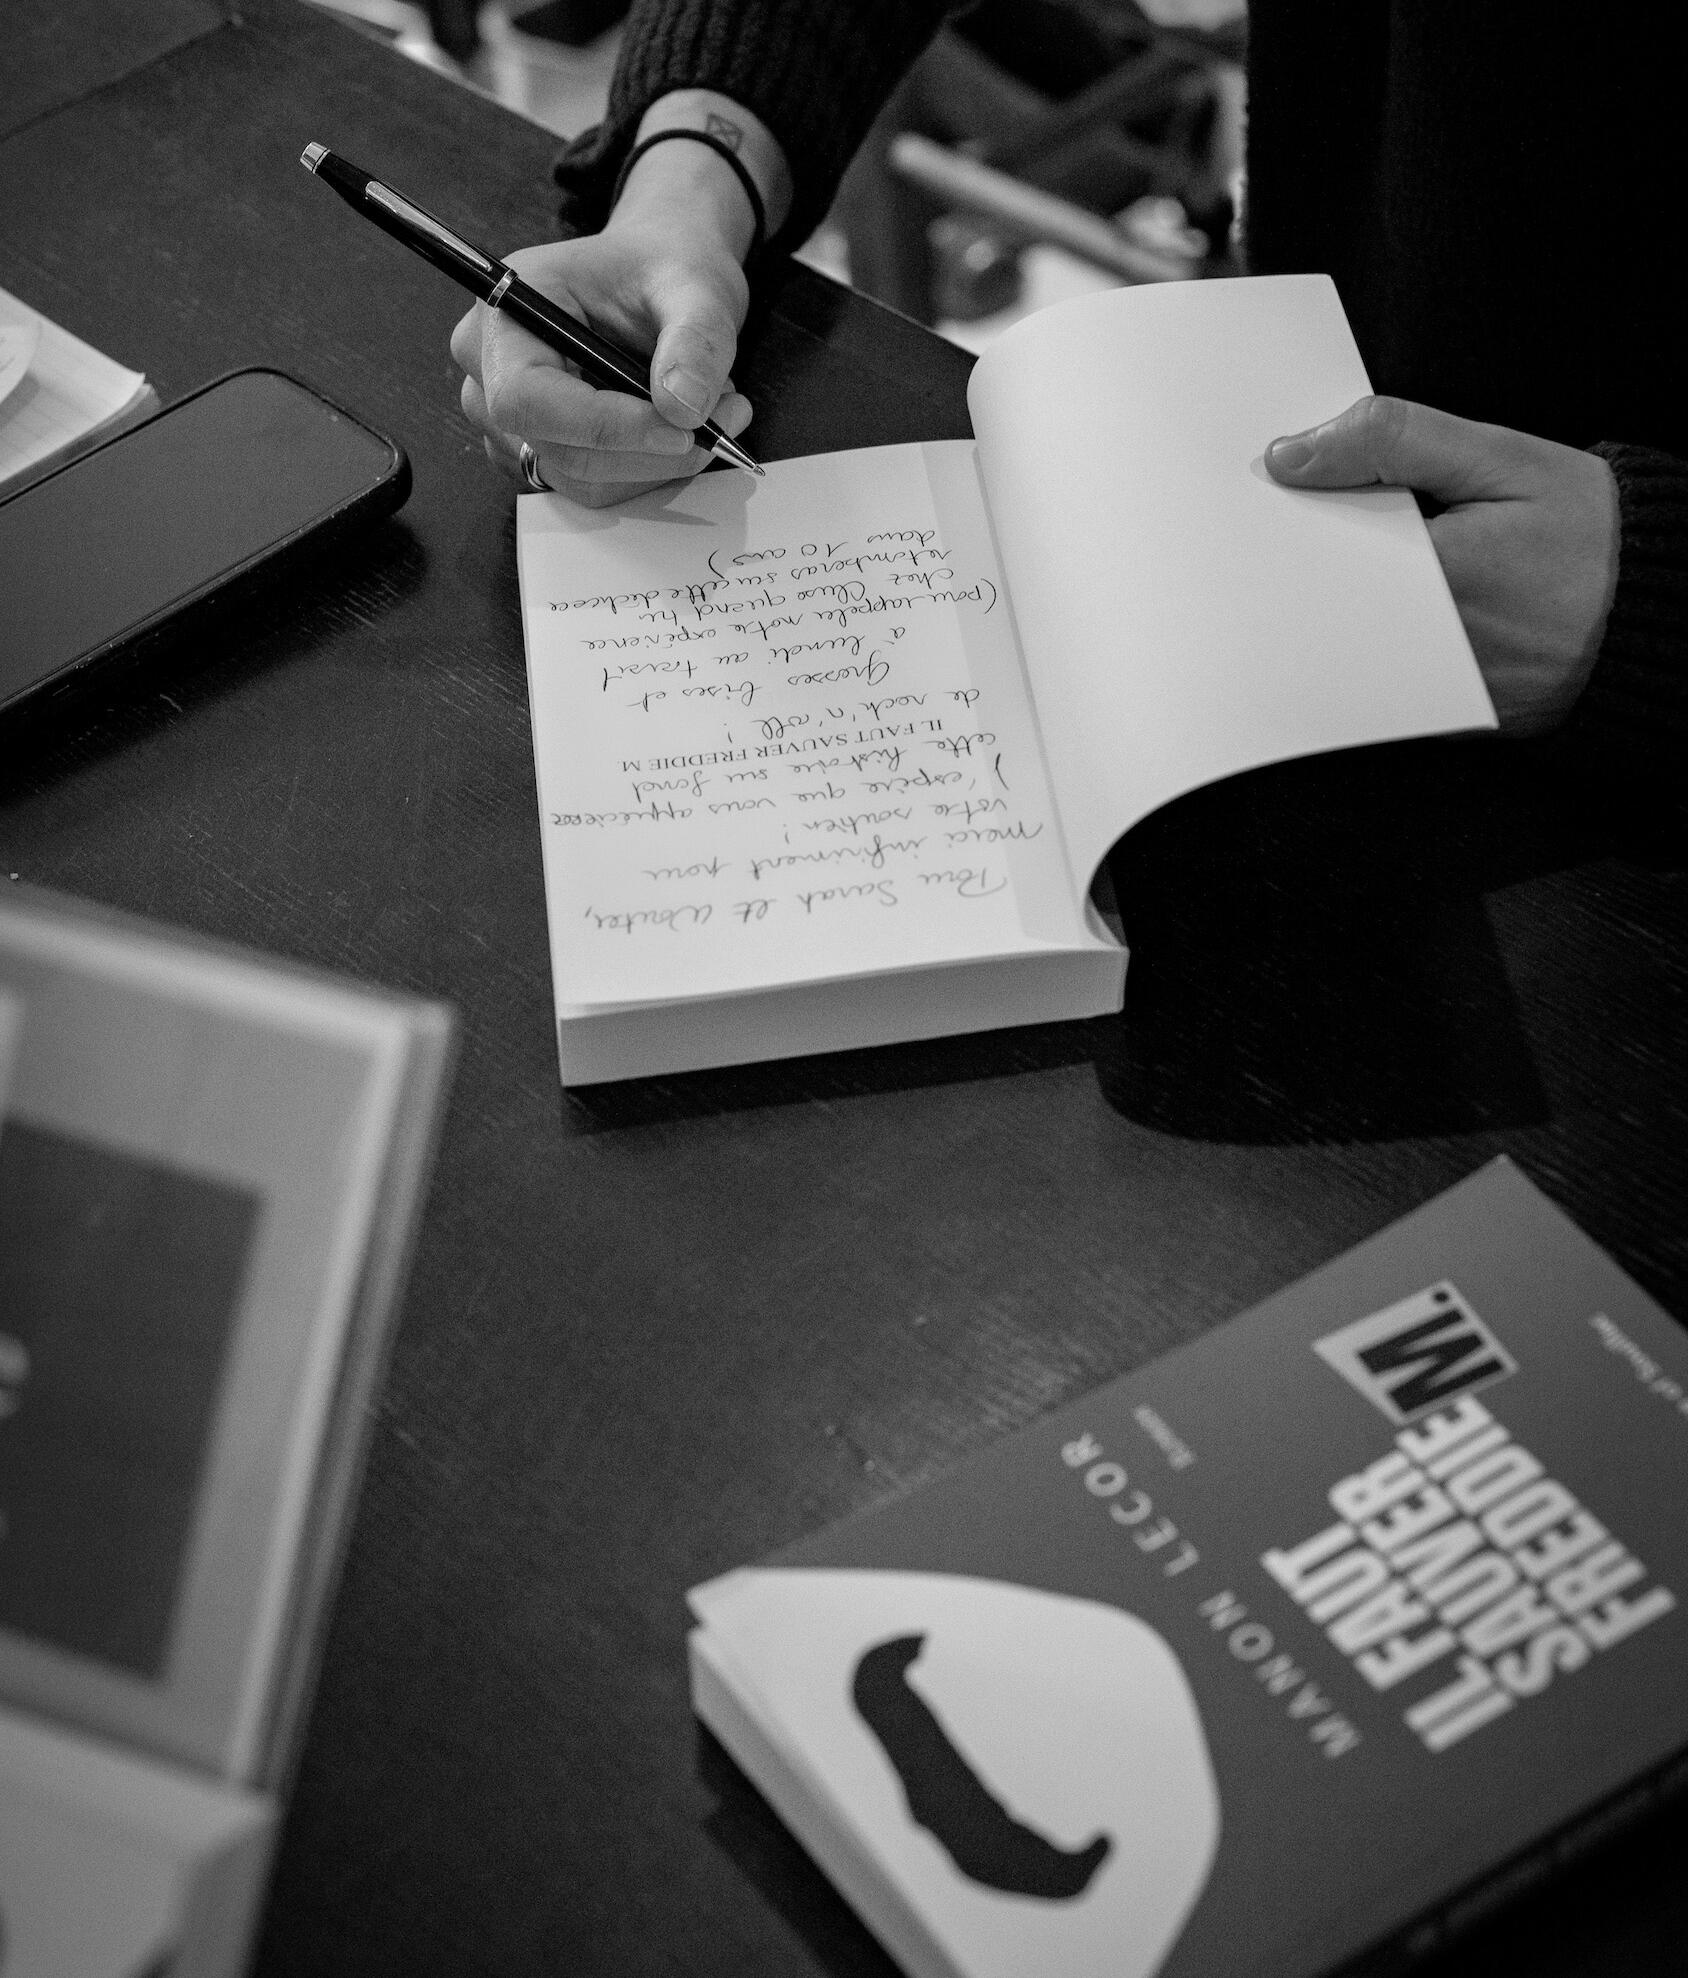 Pour Sarah et Wouter,
merci infiniment pour
votre soutien !
J'espère que vous apprécierez
cette histoire sur fond
IL FAUT SAUVER FREDDIE M.
de rock'n'roll !
Grosses bises et
à lundi au travail
(pour rappeler notre expérience
chez quand tu
retomberas sur cette dédicace
dans 10 ans)
MANON LECOR
Roman
IL FAUT
SAUVER
FREDDIE M.